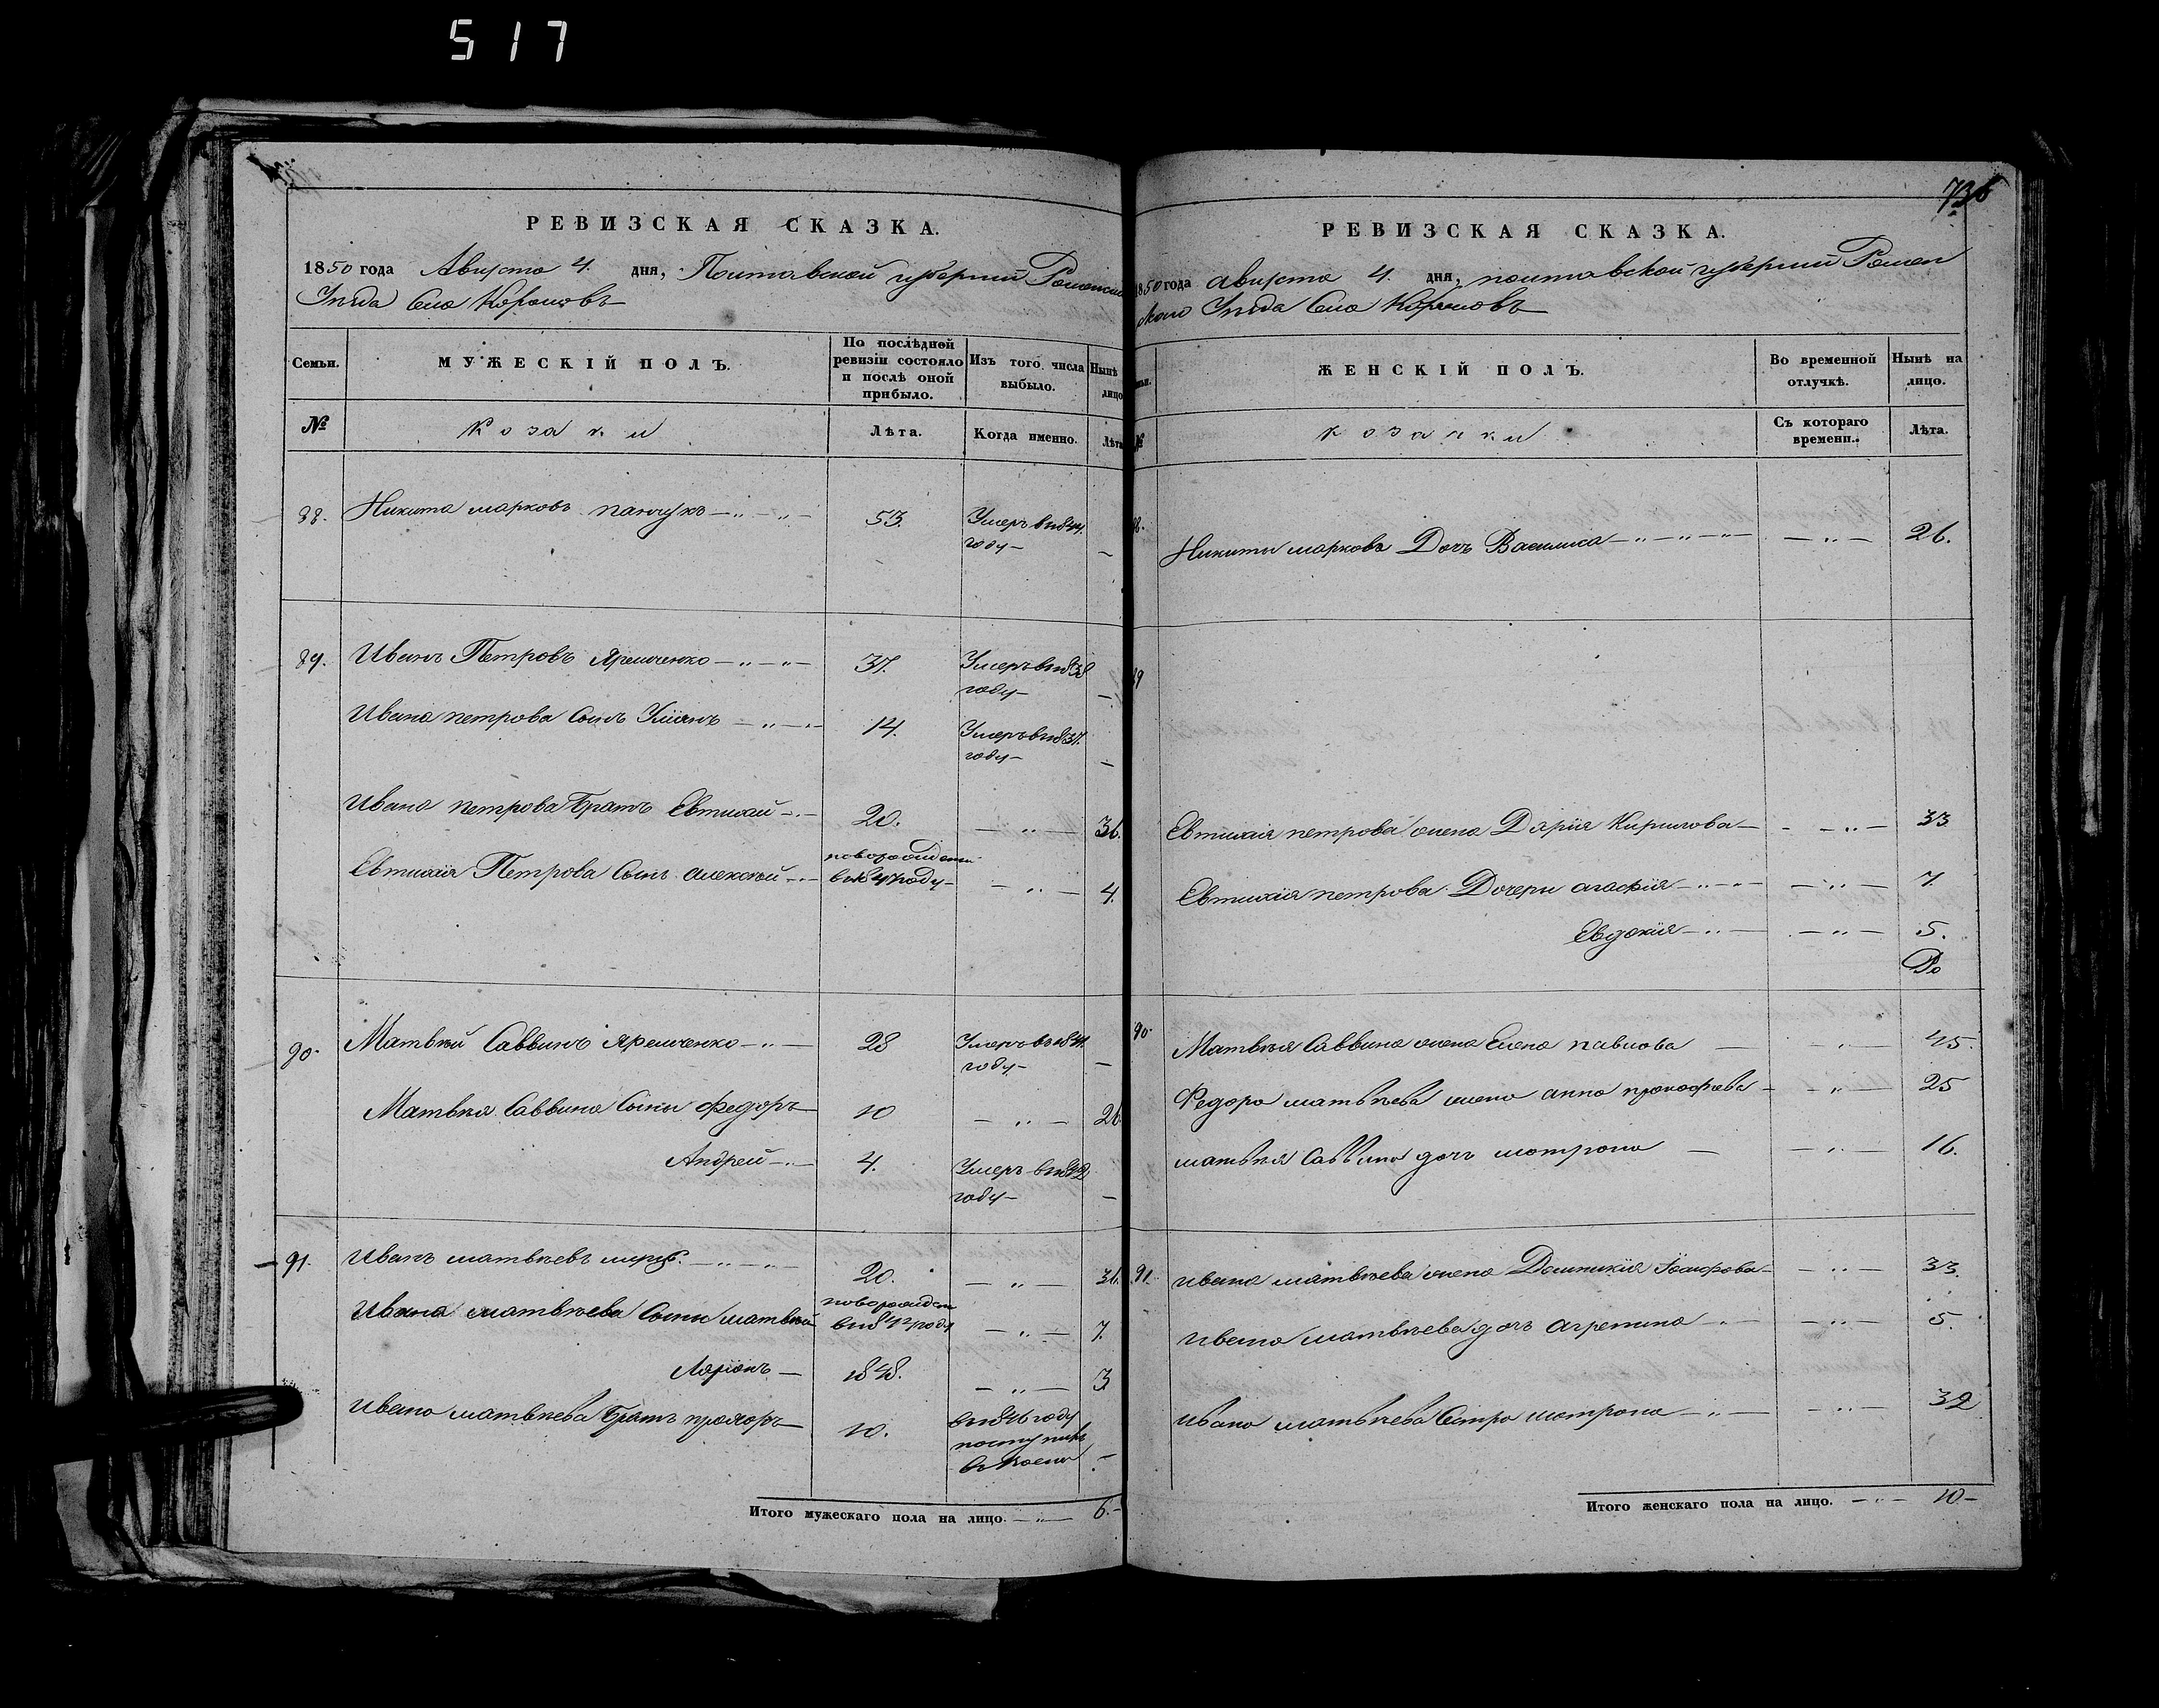 517
РЕВИЗСКАЯ СКАЗКА.
1850 года Августа 4. дня, Полтавской губернии Роменскаго
Уѣзда Село Корововъ
Семьи.
МУЖЕСКІЙ ПОЛЪ.
По послѣдней ревизіи состояло и послѣ оной прибыло.
Изъ того числа выбыло.
Нынѣ лицо
№
Козаки
Лѣта.
Когда именно.
Лѣта
88. Никита марковъ панчукъ 53. Умеръ в 1844 году —
89. Иванъ Петровъ Яременко 37. Умеръ в 1838 году —
Ивана петрова Сынъ Уліянъ 14. Умеръ в 1837. году —
Ивана петрова Братъ Евтихій 20. — 36.
Евтихія Петрова Сынъ алексѣй новорожденъ в 1847 году — 4.
90. Матвѣй Саввинъ Яременко 28 Умеръ в 1841. году —
Матвѣя Саввина Сыны Федоръ 10 — 26
Андрей 4. Умеръ в 1842 году —
91. Иванъ матвѣевъ 20. — 36.
Ивана матвѣева Сыны матвѣй новорожден в 1842 году — 7.
Ларіонъ — 1848. — 3
Ивана матвѣева Братъ прохоръ 10. в 1846 году поступилъ —
Итого мужескаго пола на лицо. 6.
736
РЕВИЗСКАЯ СКАЗКА.
1850 года августа 4. дня, полтавской губерніи Ромен
скаго Уѣзда Село Корововъ
ЖЕНСКІЙ ПОЛЪ.
Во временной отлучкѣ.
Нынѣ на лицо.
№
Козачки
Съ котораго времени.
Лѣта.
88. Никиты маркова Дочь Василиса — 26.
89
Евтихія петрова жена Дарія Кирилова — 33
Евтихія петрова Дочери агафія — 7.
Евдокія — 5.
90. Матвѣя Саввина жена Елена павлова — 45.
Федора матвѣева жена анна прокофьева — 25
матвѣя Саввина дочь мотрона — 16.
91. ивана матвѣева жена Домникія — 33.
ивана матвѣева дочь агрепина — 5.
ивана матвѣева Сестра мотрона — 32
Итого женскаго пола на лицо. 10 —